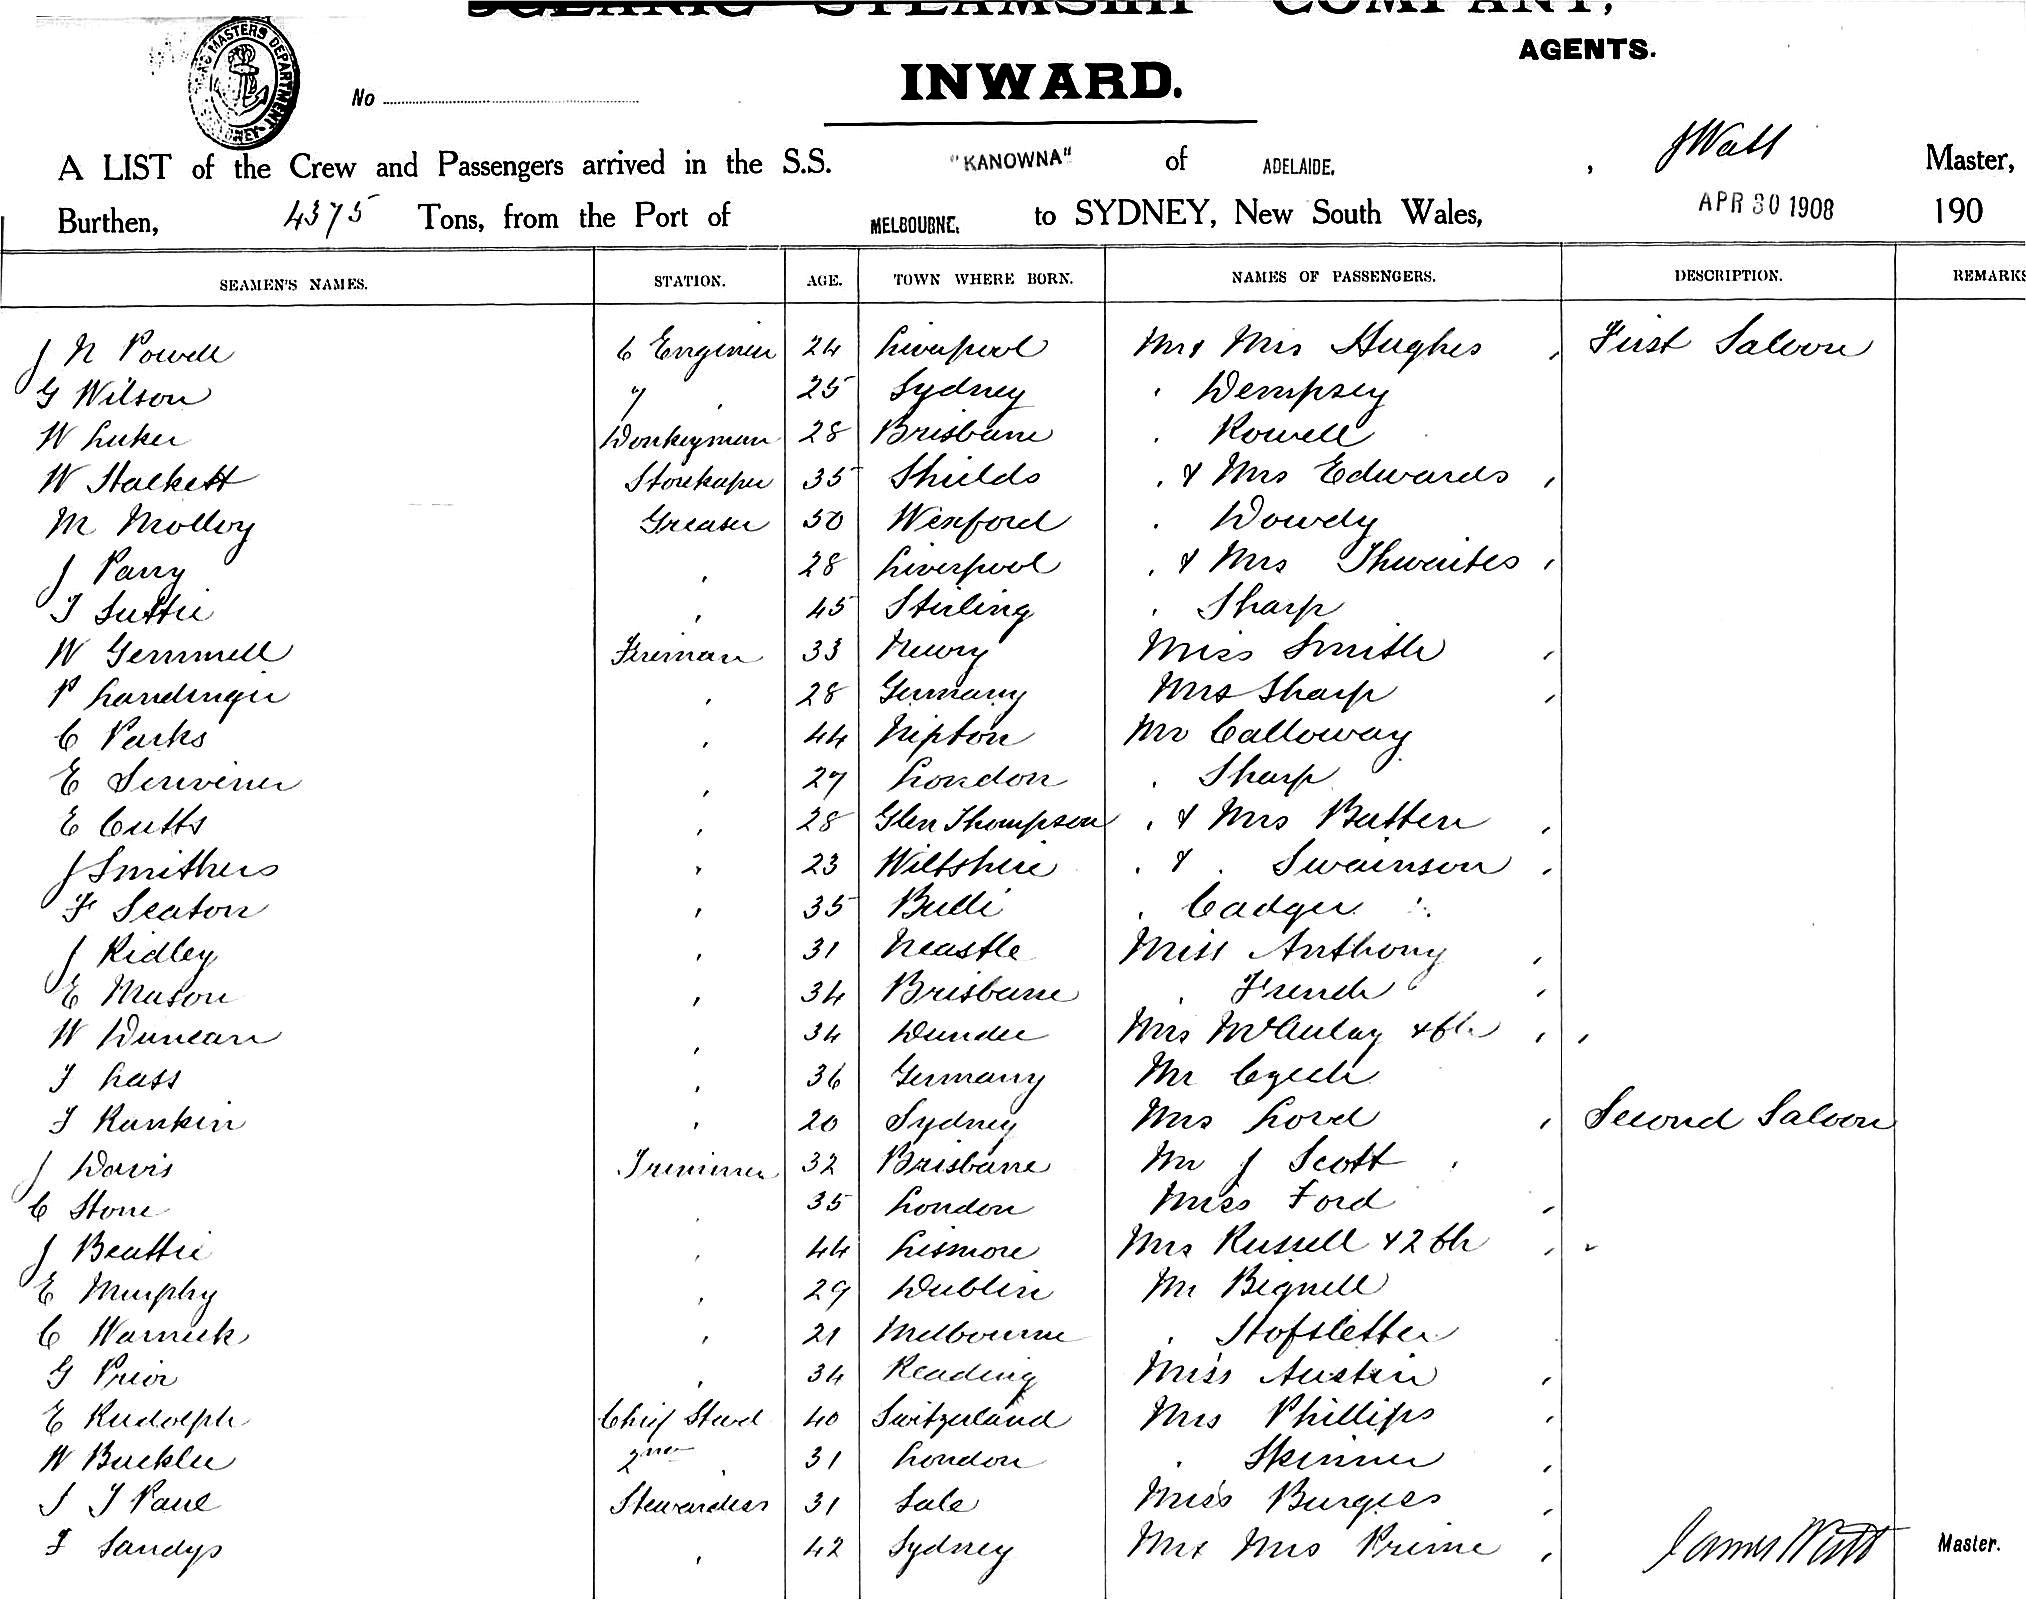 STEAMSHIP COMPANY,
AGENTS.
INWARD.
MASTERS DEPARTMENT
SYDNEY
No
A LIST of the Crew and Passengers arrived in the S.S. "KANOWNA" of ADELAIDE, , J Watt Master,
Burthen, 4375 Tons, from the Port of MELBOURNE. to SYDNEY, New South Wales, APR 30 1908 190
SEAMEN'S NAMES. STATION. AGE. TOWN WHERE BORN. NAMES OF PASSENGERS. DESCRIPTION. REMARKS
J N Powell C Engineer 24 Liverpool Mr & Mrs Hughes , First Saloon
G Wilson " . 25 Sydney . Dempsey
W Luker Donkeyman 28 Brisbane . Rowell
W Halkett Storekeeper 35 Shields . & Mrs Edwards ,
M Molloy Greaser 50 Wexford . Dowdy
J Parry , 28 Liverpool . & Mrs Thwaites ,
T Suttie , 45 Stirling . Sharp
W Gemmell Fireman 33 Newry Miss Smith ,
P Landinger , 28 Germany Mrs Sharp ,
C Parks , 44 Nipton Mr Calloway
E Scrivener , 27 London . Sharp
E Cutts , 28 Glen Thompson . & Mrs Batten ,
J Smithers , 23 Wiltshire . & . Swainson ,
F Seaton , 35 Bulli . Cadger
J Ridley , 31 Ncastle Miss Anthony ,
E Mason , 34 Brisbane . French ,
W Duncan , 34 Dundee Mrs McAulay & Ch , ,
T Lass , 36 Germany Mr Czech
T Rankin , 20 Sydney Mrs Lord , Second Saloon
J Davis Trimmer 32 Brisbane Mr J Scott
C Stone , 35 London Miss Ford ,
J Beattie , 44 Lismore Mrs Russell & 2 Ch , ,
E Murphy , 29 Dublin Mr Bignell
C Warnick , 21 Melbourne . Hofsletter
G Prior , 34 Reading Miss Austin ,
E Rudolph Chief Stewd 40 Switzerland Mrs Phillips ,
W Bucklee 2nd . 31 London . Skinner ,
S J Paul Stewardess 31 Sale Miss Burgess ,
F Sandys , 42 Sydney Mr & Mrs Prime , James Watt Master.